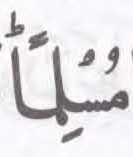 مُسْلِمًاؕ